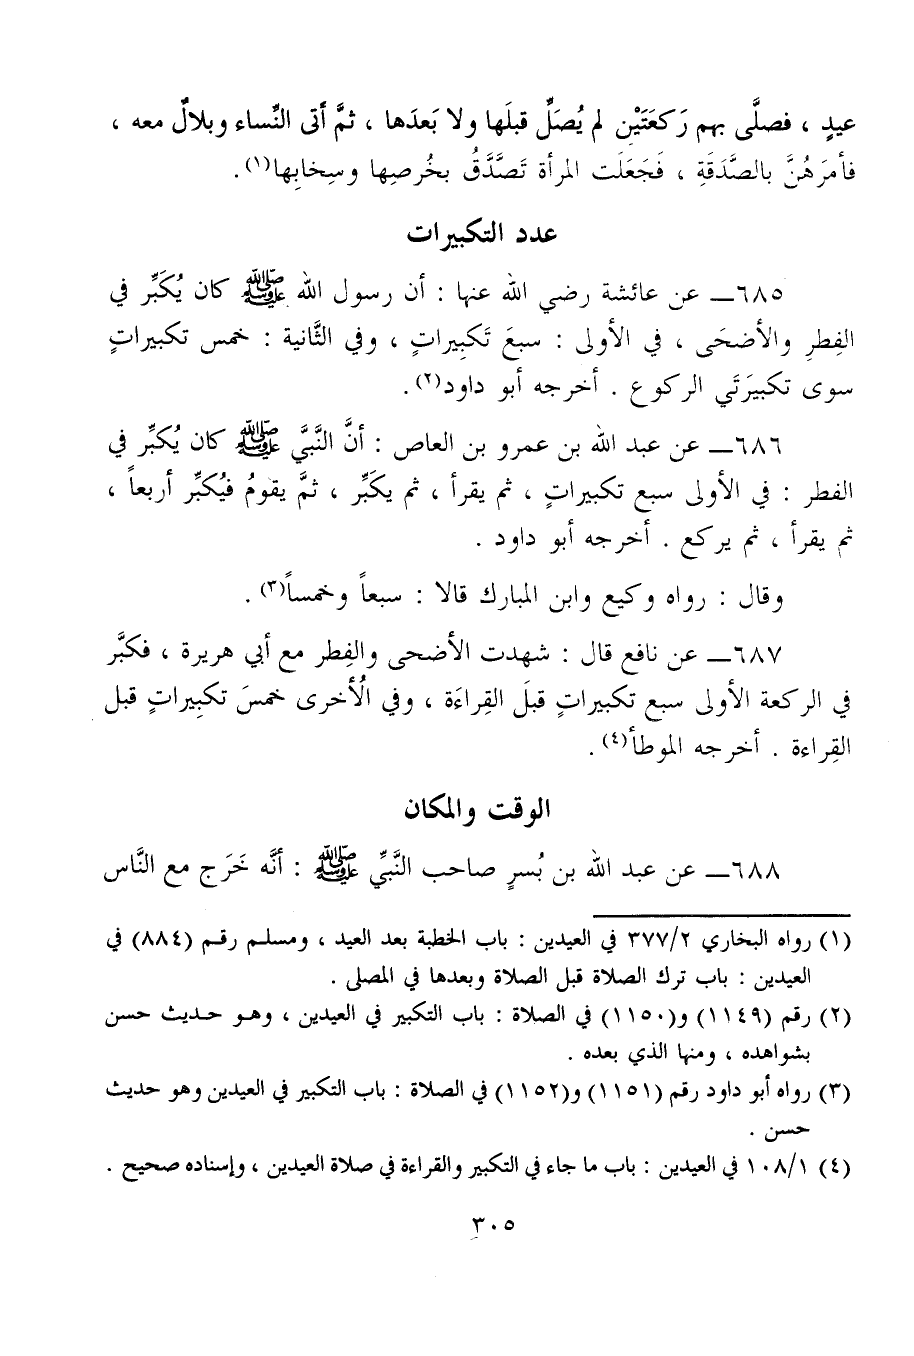 عيدٍ ، فصلَّى بهم رَكعَتَيْن لم يُصَلِّ قبلَها ولا بَعدَها ، ثمَّ أتى النِّساء وبلالٌ معه ،
فأمرَهُنَّ بالصَّدَقَةِ ، فَجَعَلَت المرأة تَصَّدَّقُ بخُرصِها وسِخابِها(١) .
عدد التكبيرات
٦٨٥ــ عن عائشة رضي الله عنها : أن رسول الله ﷺ كان يُكَبِّر في
الفِطرِ والأضحَى ، في الأولى : سبعَ تَكبِيراتٍ ، وفي الثَّانية : خمس تكبيراتٍ
سوى تكبيرَتَي الركوع . أخرجه أبو داود(٢) .
٦٨٦ــ عن عبد الله بن عمرو بن العاص : أنَّ النَّبيَّ ﷺ كان يُكبِّر في
الفطر : في الأولى سبع تكبيراتٍ ، ثم يقرأ ، ثم يكَبِّر ، ثمَّ يقومُ فيُكبِّر أربعاً ،
ثم يقرأ ، ثم يركع . أخرجه أبو داود .
وقال : رواه وكيع وابن المبارك قالا : سبعاً وخمساً(٣) .
٦٨٧ــ عن نافع قال : شهدت الأضحى والفِطر مع أبي هريرة ، فكبَّر
في الركعة الأولى سبع تكبيراتٍ قبلَ القِراءَة ، وفي الأُخرى خمسَ تكبِيراتٍ قبل
القِراءة . أخرجه الموطأ(٤) .
الوقت والمكان
٦٨٨ــ عن عبد الله بن بُسرٍ صاحب النَّبيِّ ﷺ : أنَّه خَرَج مع النَّاس
(١) رواه البخاري ٣٧٧/٢ في العيدين : باب الخطبة بعد العيد ، ومسلم رقم (٨٨٤) في
العيدين : باب ترك الصلاة قبل الصلاة وبعدها في المصلى .
(٢) رقم (١١٤٩) و(١١٥٠) في الصلاة : باب التكبير في العيدين ، وهو حديث حسن
بشواهده ، ومنها الذي بعده .
(٣) رواه أبو داود رقم (١١٥١) و(١١٥٢) في الصلاة : باب التكبير في العيدين وهو حديث
حسن .
(٤) ١٠٨/١ في العيدين : باب ما جاء في التكبير والقراءة في صلاة العيدين ، وإسناده صحيح .
٣٠٥